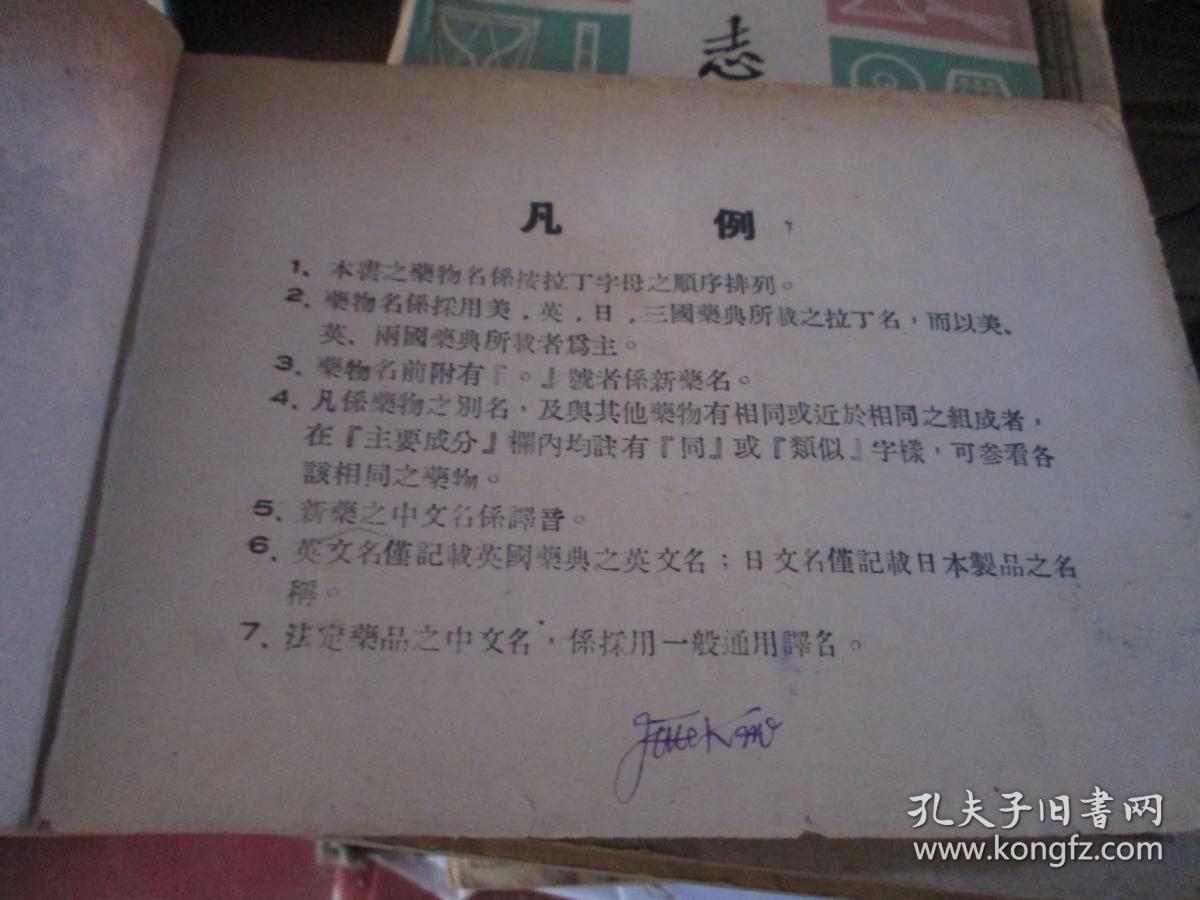 志
凡 例
1、本書之藥物名係按拉丁字母之順序排列。
2、藥物名係採用美．英．日．三國藥典所載之拉丁名，而以美、
英．兩國藥典所載者爲主。
3、藥物名前附有『。』號者係新藥名。
4、凡係藥物之別名，及與其他藥物有相同或近於相同之組成者，
在『主要成分』欄內均註有『同』或『類似』字樣，可參看各
該相同之藥物。
5、新藥之中文名係譯音。
6、英文名僅記載英國藥典之英文名；日文名僅記載日本製品之名
稱。
7、法定藥品之中文名，係採用一般通用譯名。
孔夫子旧书网
www.kongfz.com